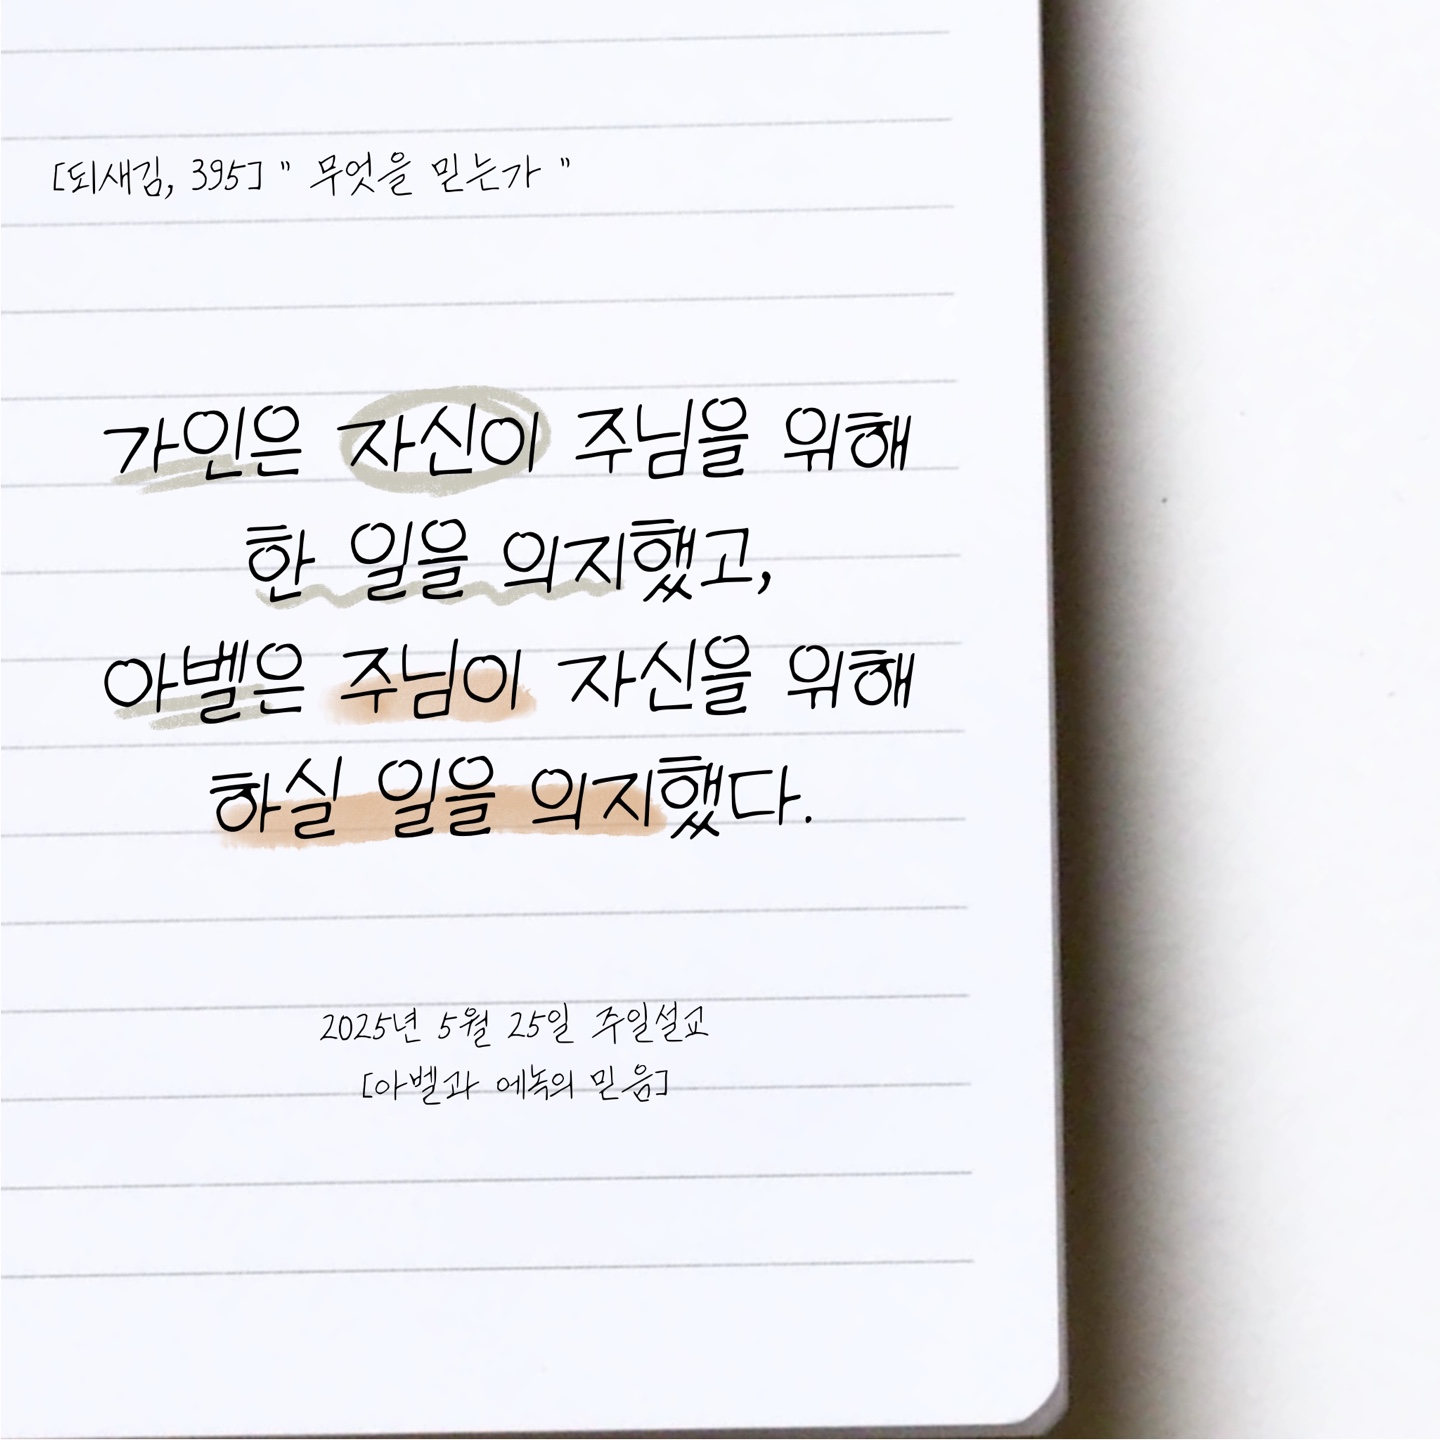 [되새김, 395] " 무엇을 믿는가 "
가인은 자신이 주님을 위해
한 일을 의지했고,
아벨은 주님이 자신을 위해
하실 일을 의지했다.
2025년 5월 25일 주일설교
[아벨과 에녹의 믿음]